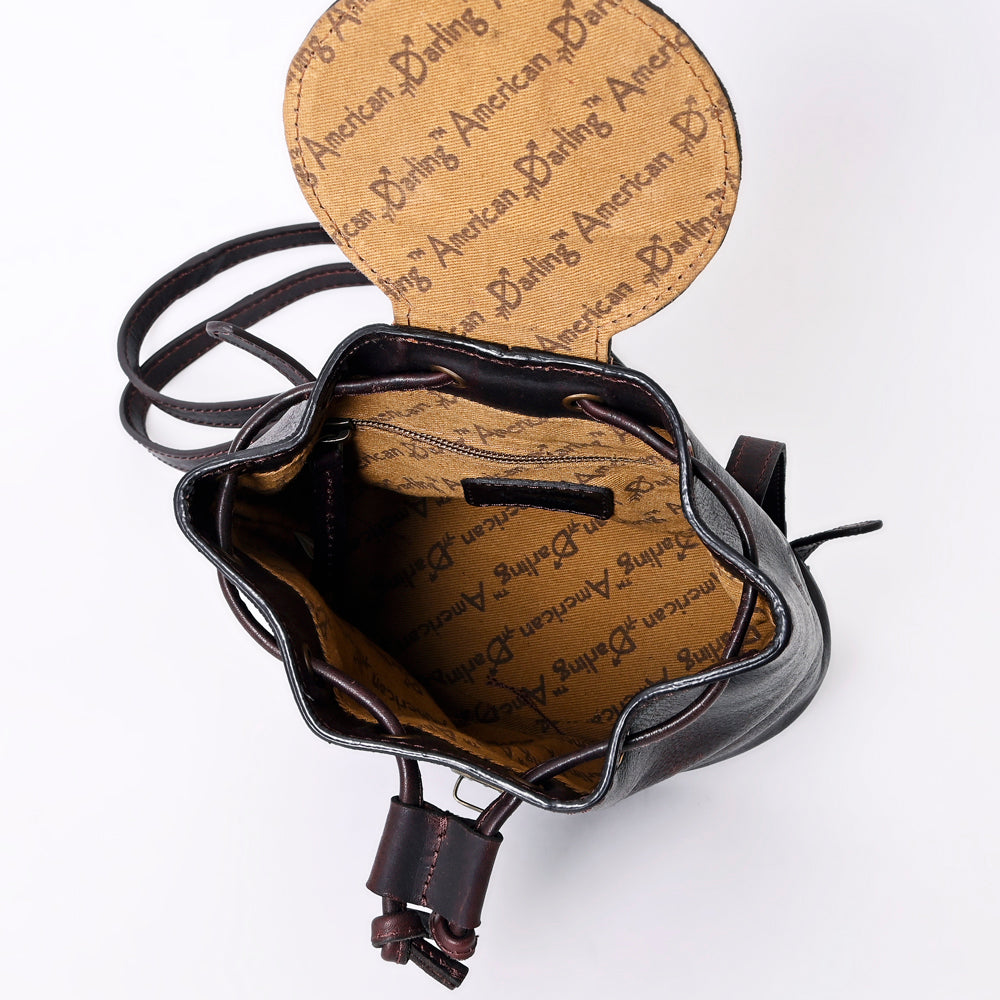 American Darling™
American Darling™
American Darling™ American
American Darling™
American Darling
American
American Darling™
American Darling™ American
American Darling™
American